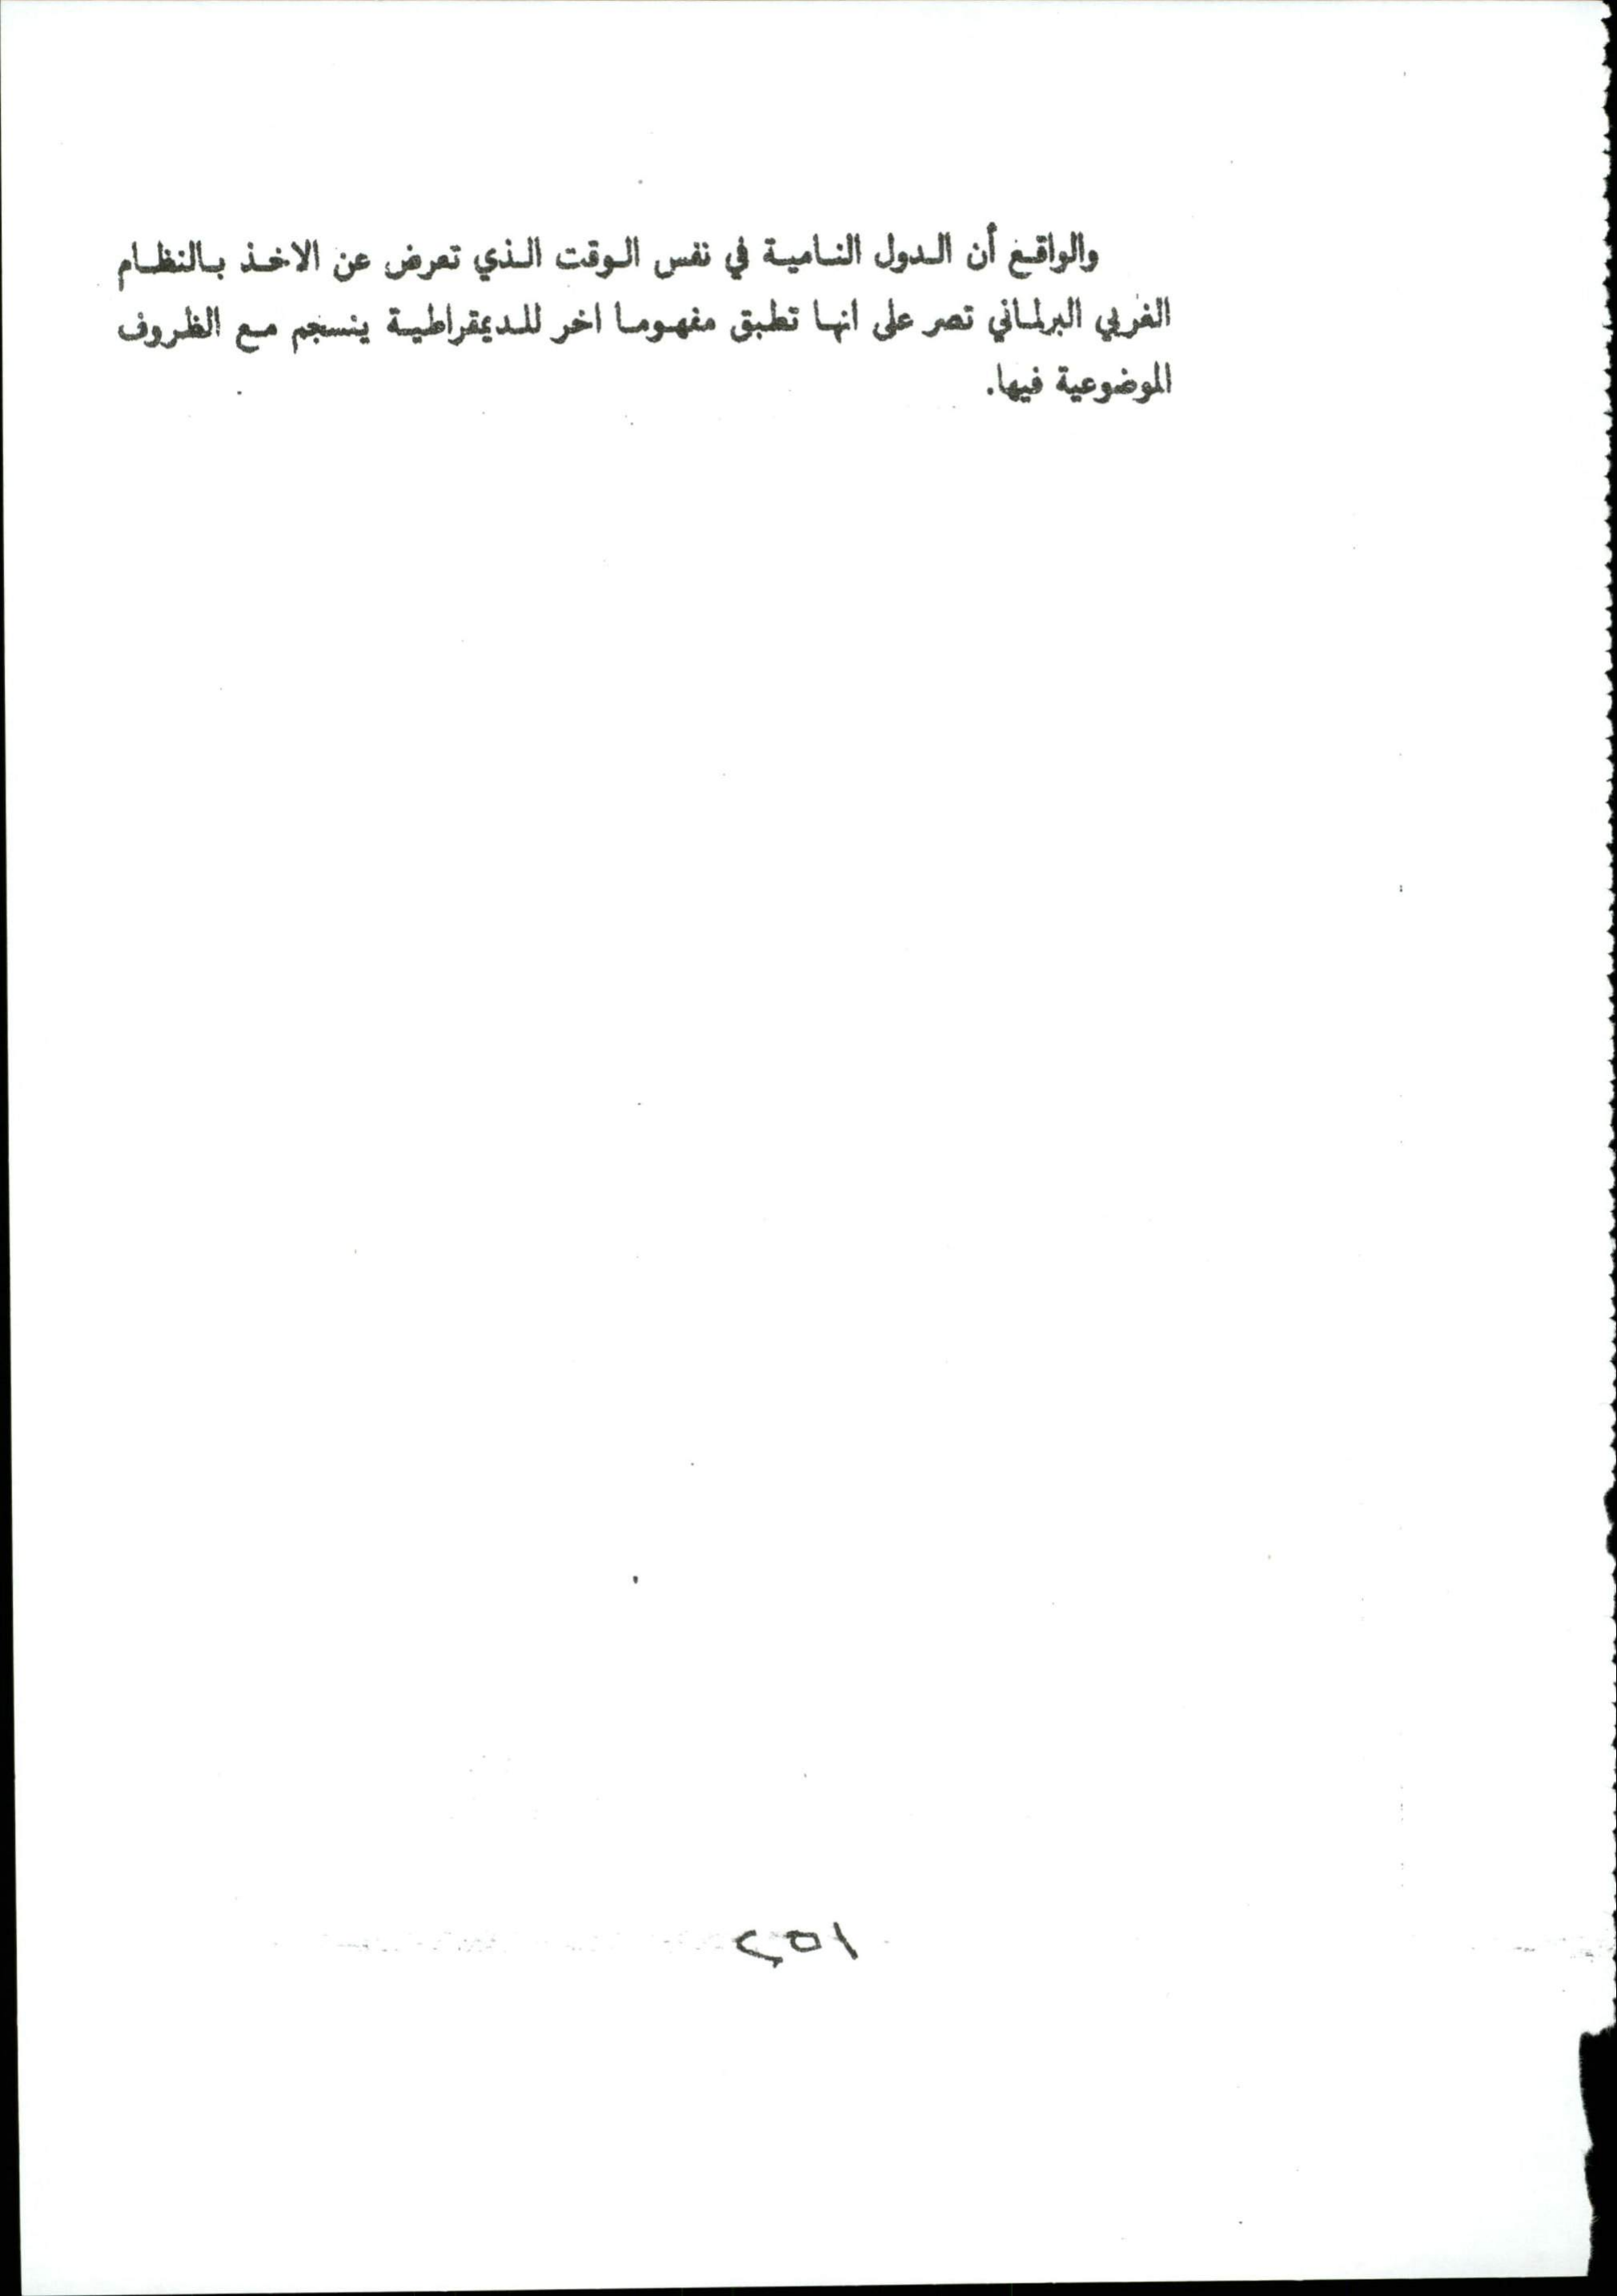 والواقع أن الدول النامية في نفس الوقت الذي تعرض عن الاخذ بالنظام
الغربي البرلماني تصر على انها تطبق مفهوما اخر للديمقراطية ينسجم مع الظروف
الموضوعية فيها.
١٥٢